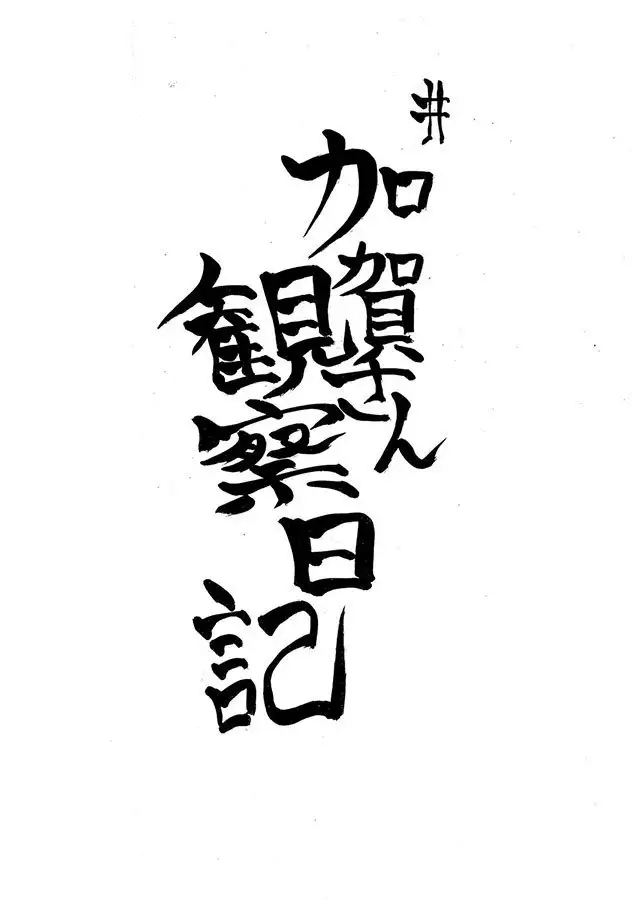 #加賀さん
観察日記